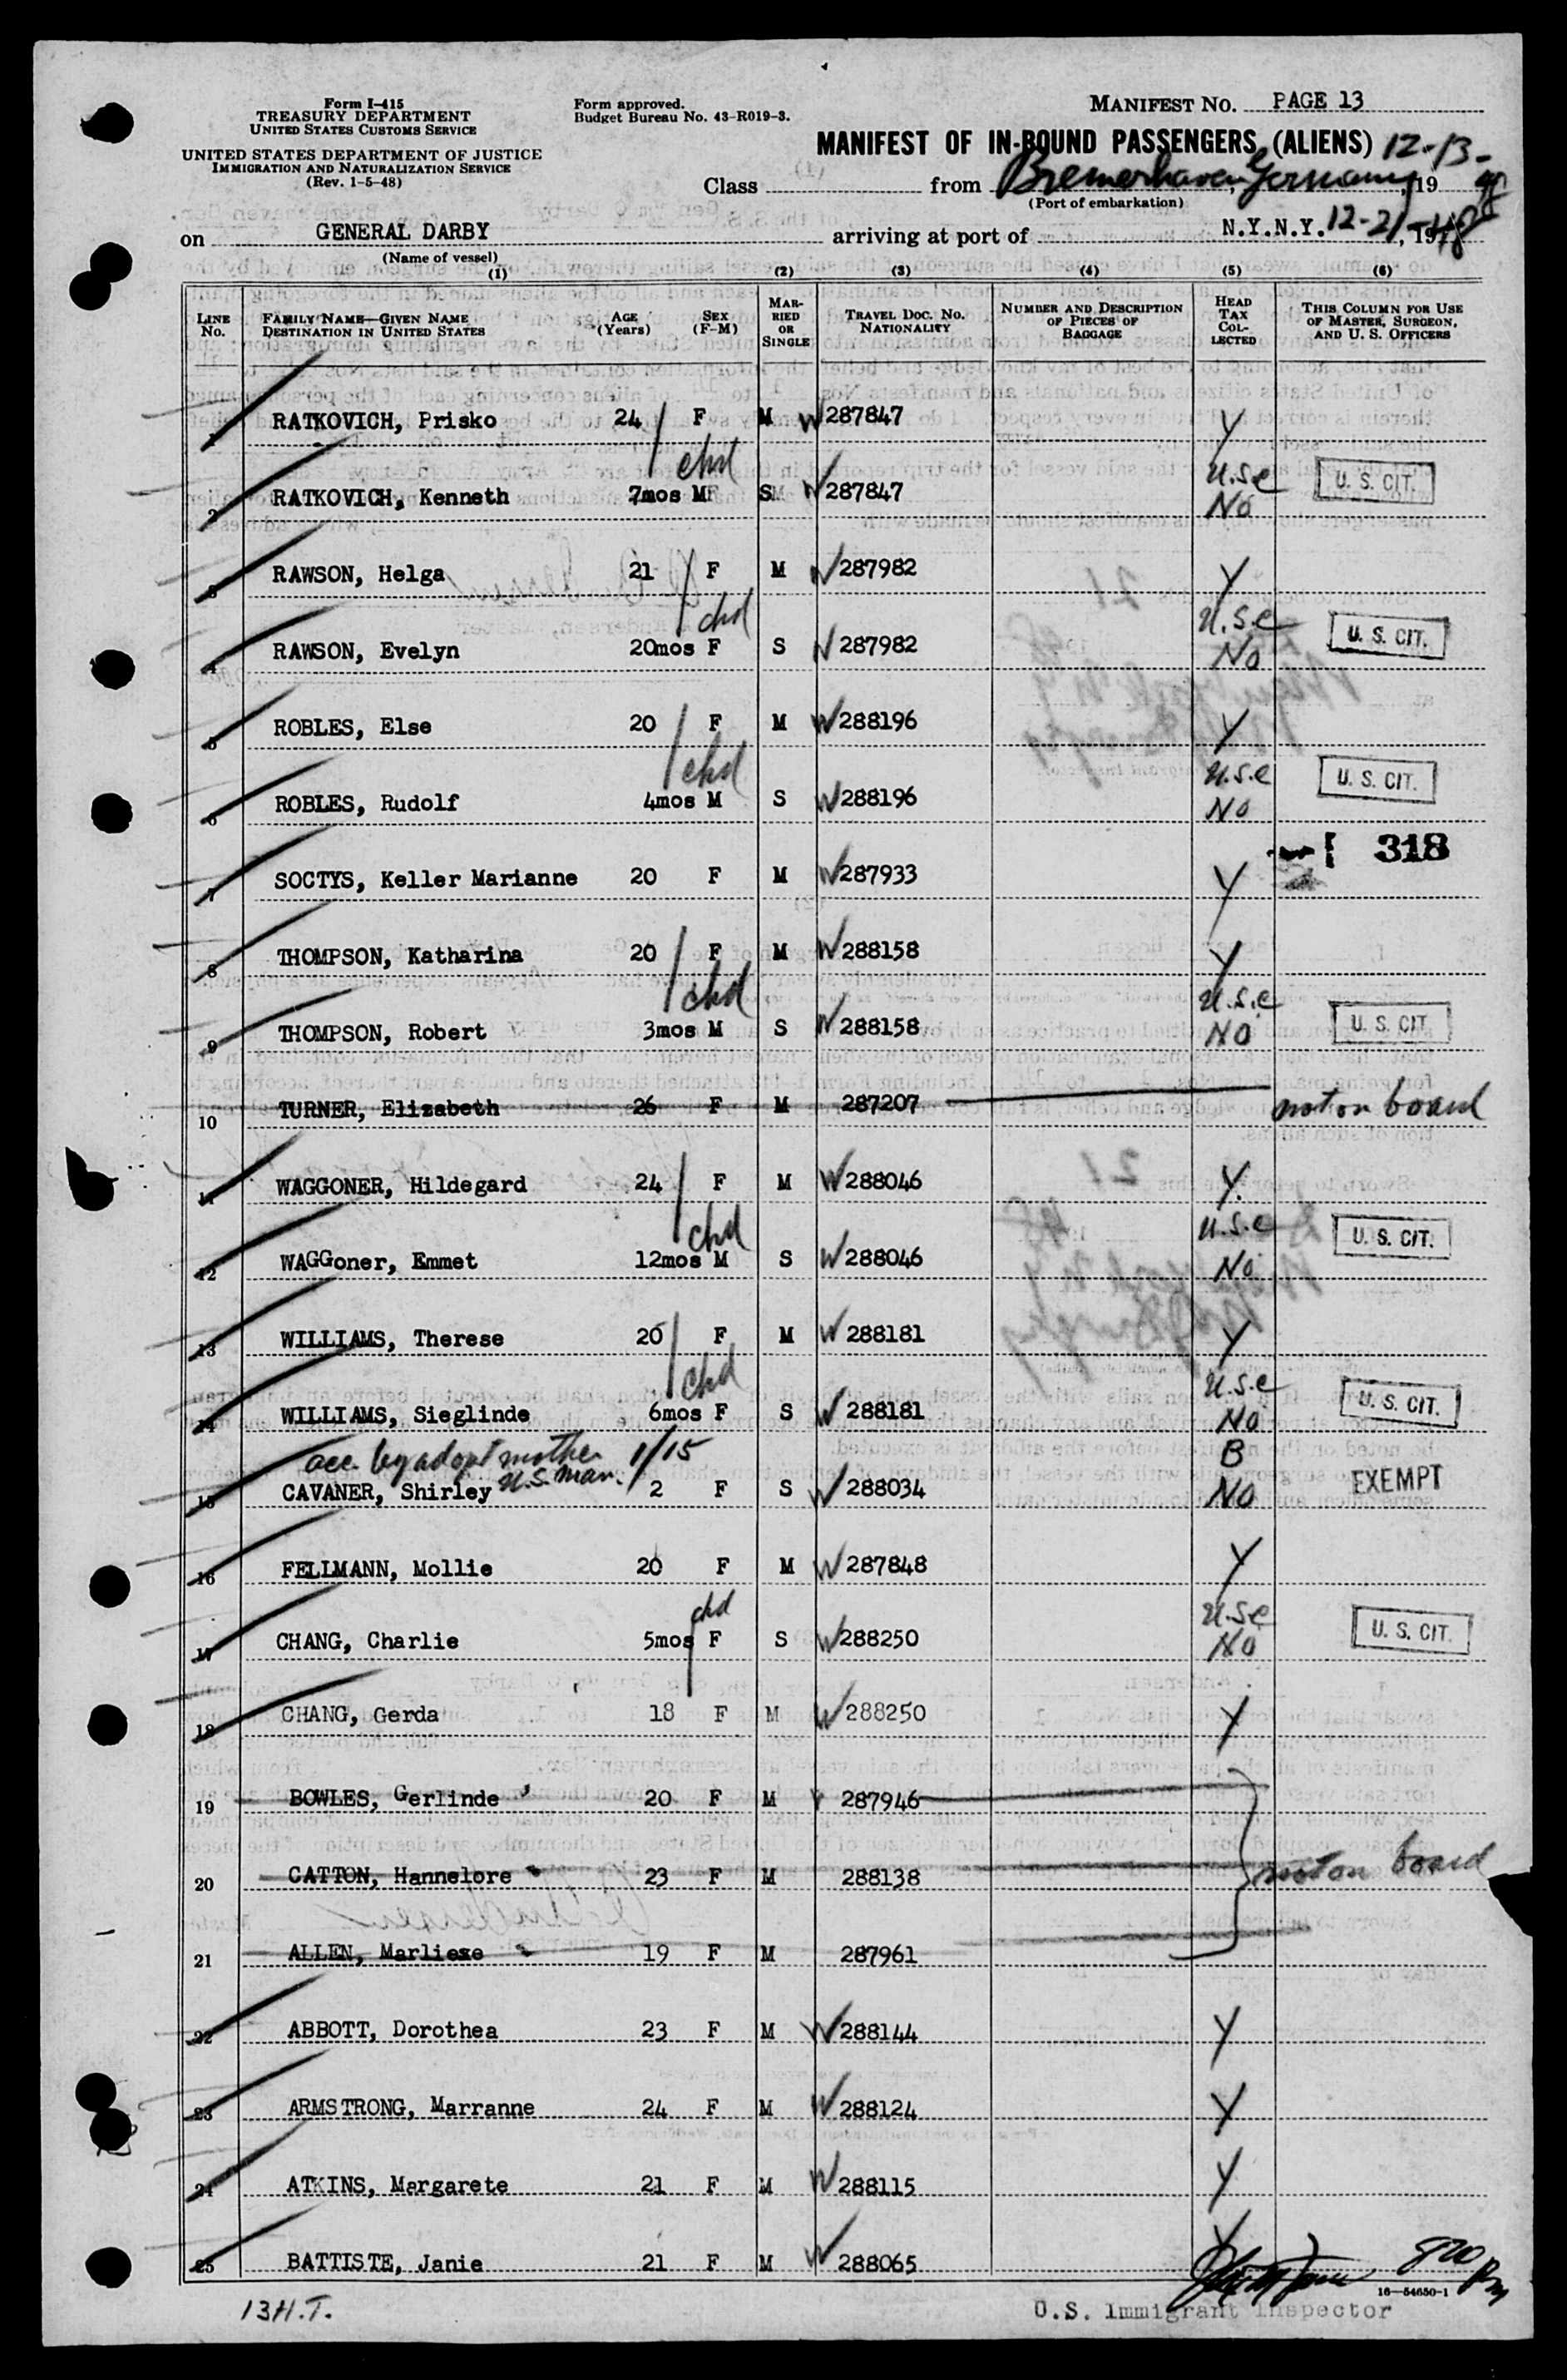 Form I-415
TREASURY DEPARTMENT
UNITED STATES CUSTOMS SERVICE
UNITED STATES DEPARTMENT OF JUSTICE
IMMIGRATION AND NATURALIZATION SERVICE
(Rev. 1-5-48)
Form approved.
Budget Bureau No. 43-R019-3.
MANIFEST NO. PAGE 13
MANIFEST OF IN-BOUND PASSENGERS (ALIENS) 12-13-
Class (1) from Bremerhaven, Germany, 19 48
(Port of embarkation)
on GENERAL DARBY arriving at port of N.Y.N.Y. 12-21, 1948
(Name of vessel)
(1) (2) (3) (4) (5) (6)
LINE No. FAMILY NAME—GIVEN NAME DESTINATION IN UNITED STATES AGE (Years) SEX (F-M) MARRIED OR SINGLE TRAVEL DOC. NO. NATIONALITY NUMBER AND DESCRIPTION OF PIECES OF BAGGAGE HEAD TAX COLLECTED THIS COLUMN FOR USE OF MASTER, SURGEON, AND U. S. OFFICERS
1 RATKOVICH, Prisko 24 F M W 287847 Y
chd U.S.C
2 RATKOVICH, Kenneth 7mos M S 287847 No U. S. CIT.
3 RAWSON, Helga 21 F M 287982 Y
chd U.S.C
4 RAWSON, Evelyn 20mos F S 287982 No U. S. CIT.
5 ROBLES, Else 20 F M 288196 Y
chd U.S.C
6 ROBLES, Rudolf 4mos M S 288196 No U. S. CIT.
318
7 SOCTYS, Keller Marianne 20 F M 287933 Y
8 THOMPSON, Katharina 20 F M 288158 Y
chd U.S.C
9 THOMPSON, Robert 3mos M S 288158 NO U. S. CIT
10 TURNER, Elizabeth 26 F M 287207 not on board
11 WAGGONER, Hildegard 24 F M 288046 Y.
chd U.S.C
12 WAGGoner, Emmet 12mos M S 288046 No U. S. CIT.
13 WILLIAMS, Therese 20 F M 288181 Y
chd U.S.C
14 WILLIAMS, Sieglinde 6mos F S 288181 No U. S. CIT.
acc. by adopt mother 1/15 B
U.S. Man.
15 CAVANER, Shirley 2 F S 288034 NO EXEMPT
16 FELLMANN, Mollie 20 F M 287848 Y
chd U.S.C
17 CHANG, Charlie 5mos F S 288250 No U. S. CIT.
18 CHANG, Gerda 18 F M 288250 Y
19 BOWLES, Gerlinde 20 F M 287946
20 CATTON, Hannelore 23 F M 288138 not on board
21 ALLEN, Marliese 19 F M 287961
22 ABBOTT, Dorothea 23 F M 288144 Y
23 ARMSTRONG, Marranne 24 F M 288124 Y
24 ATKINS, Margarete 21 F M 288115 Y
25 BATTISTE, Janie 21 F M 288065 Y
820 Pm
16—54650-1
13H.T.
U.S. Immigrant Inspector